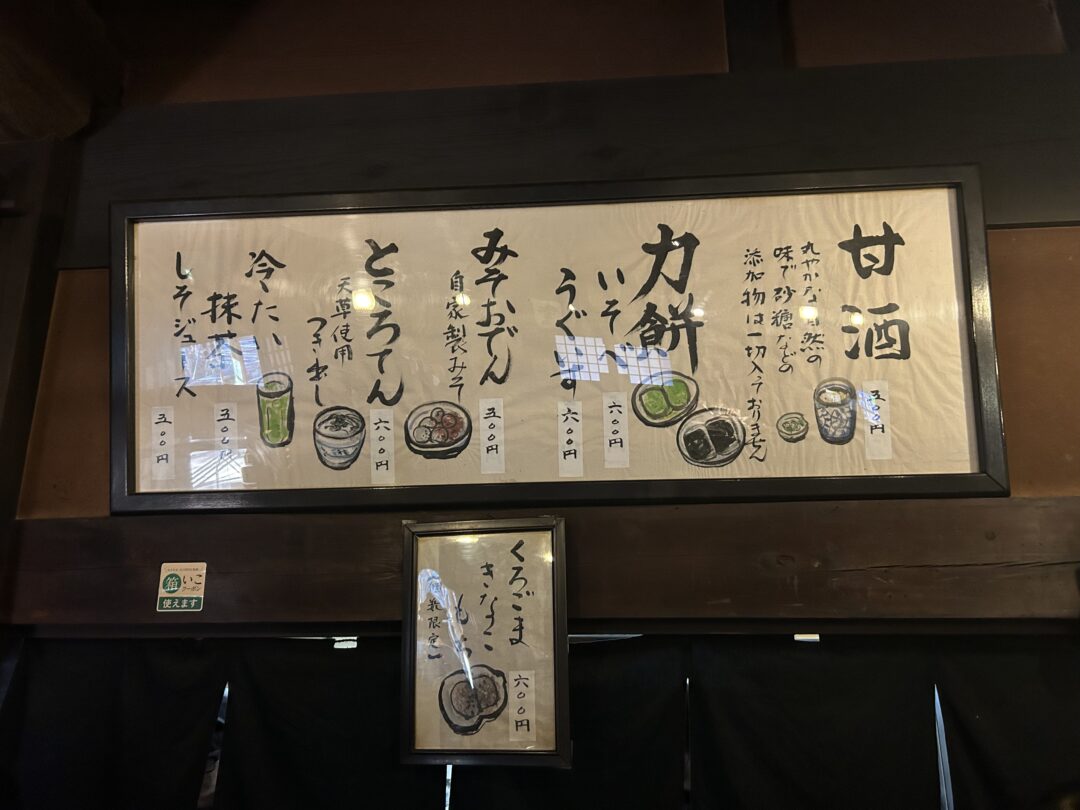 甘酒
丸やかな自然の
味で砂糖などの
添加物は一切入っておりません
五〇〇円
力餅
いそべ
六〇〇円
うぐいす
六〇〇円
みそおでん
自家製みそ
五〇〇円
ところてん
天草使用
つき出し
六〇〇円
冷たい
抹茶
五〇〇円
しそジュース
五〇〇円
くろごま
きなこ
もち
数限定
六〇〇円
箱いこ
クーポン
使えます